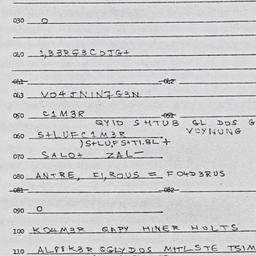 030 O
040 1,33RG3CDJG+
041 042
043 VO4JNIN7G3N
050 C1M3R 051
QYID SHTUB GL DOS G
060 S+LUFC1M3R VUYNUNG
)S+LUFS+TI.BL +
070 SALO+ ZAL—
080 ANTRE, FI,ROUS = FO4D3RUS
081 082
090 O
100 KO4M3R QAPY HINER HOLTS
110 ALPPK3R GGLYDOS MITLSTE TSIM